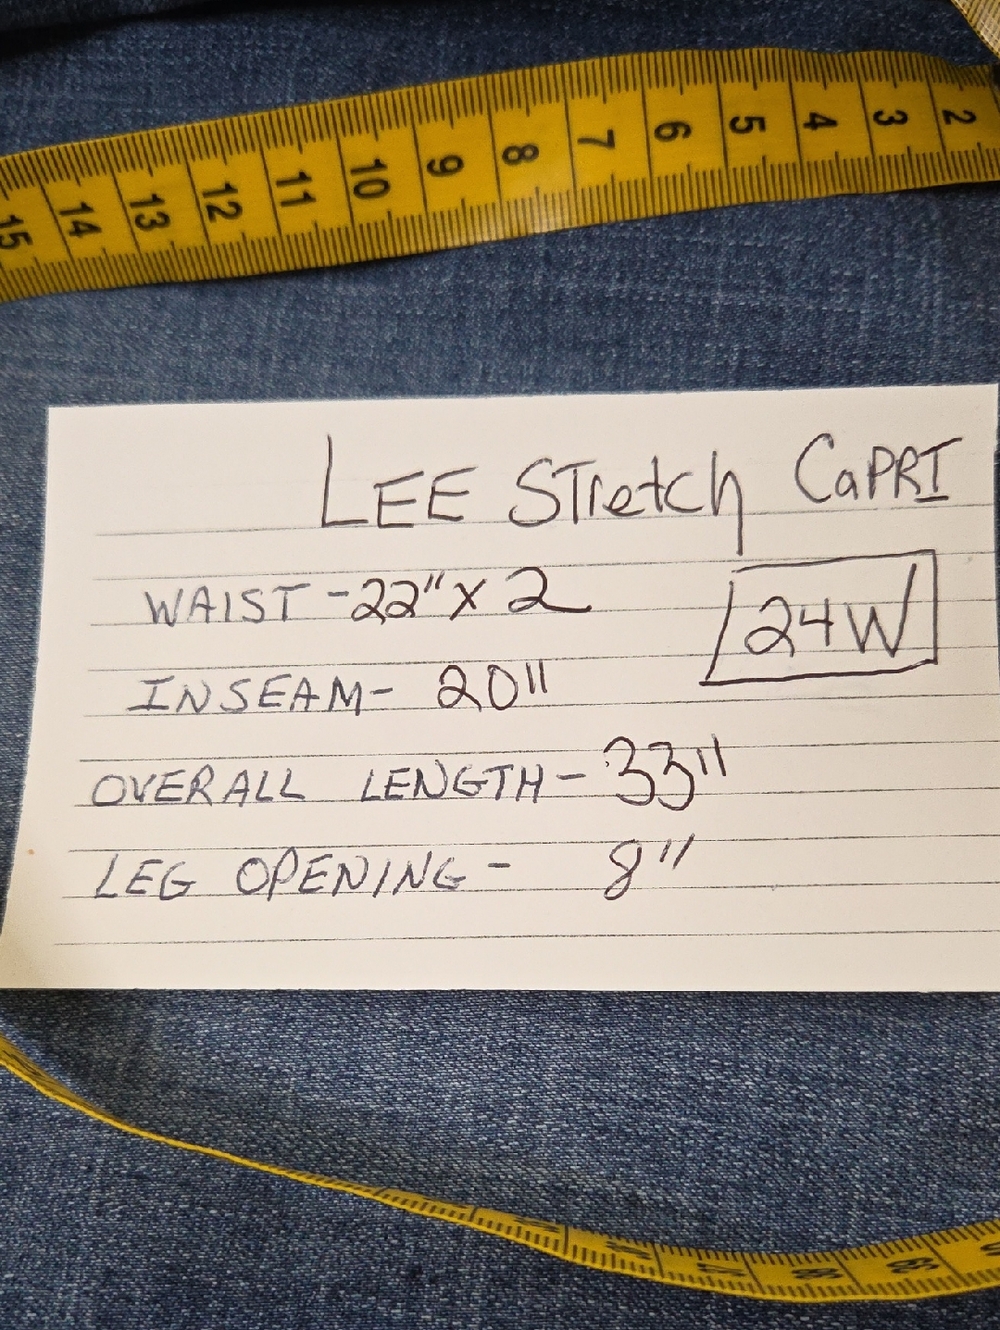 2 3 4 5 6 7 8 9 10 11 12 13 14 15
LEE STretch CaPRI
WAIST - 22" x 2
24W
INSEAM - 20"
OVERALL LENGTH - 33"
LEG OPENING - 8"